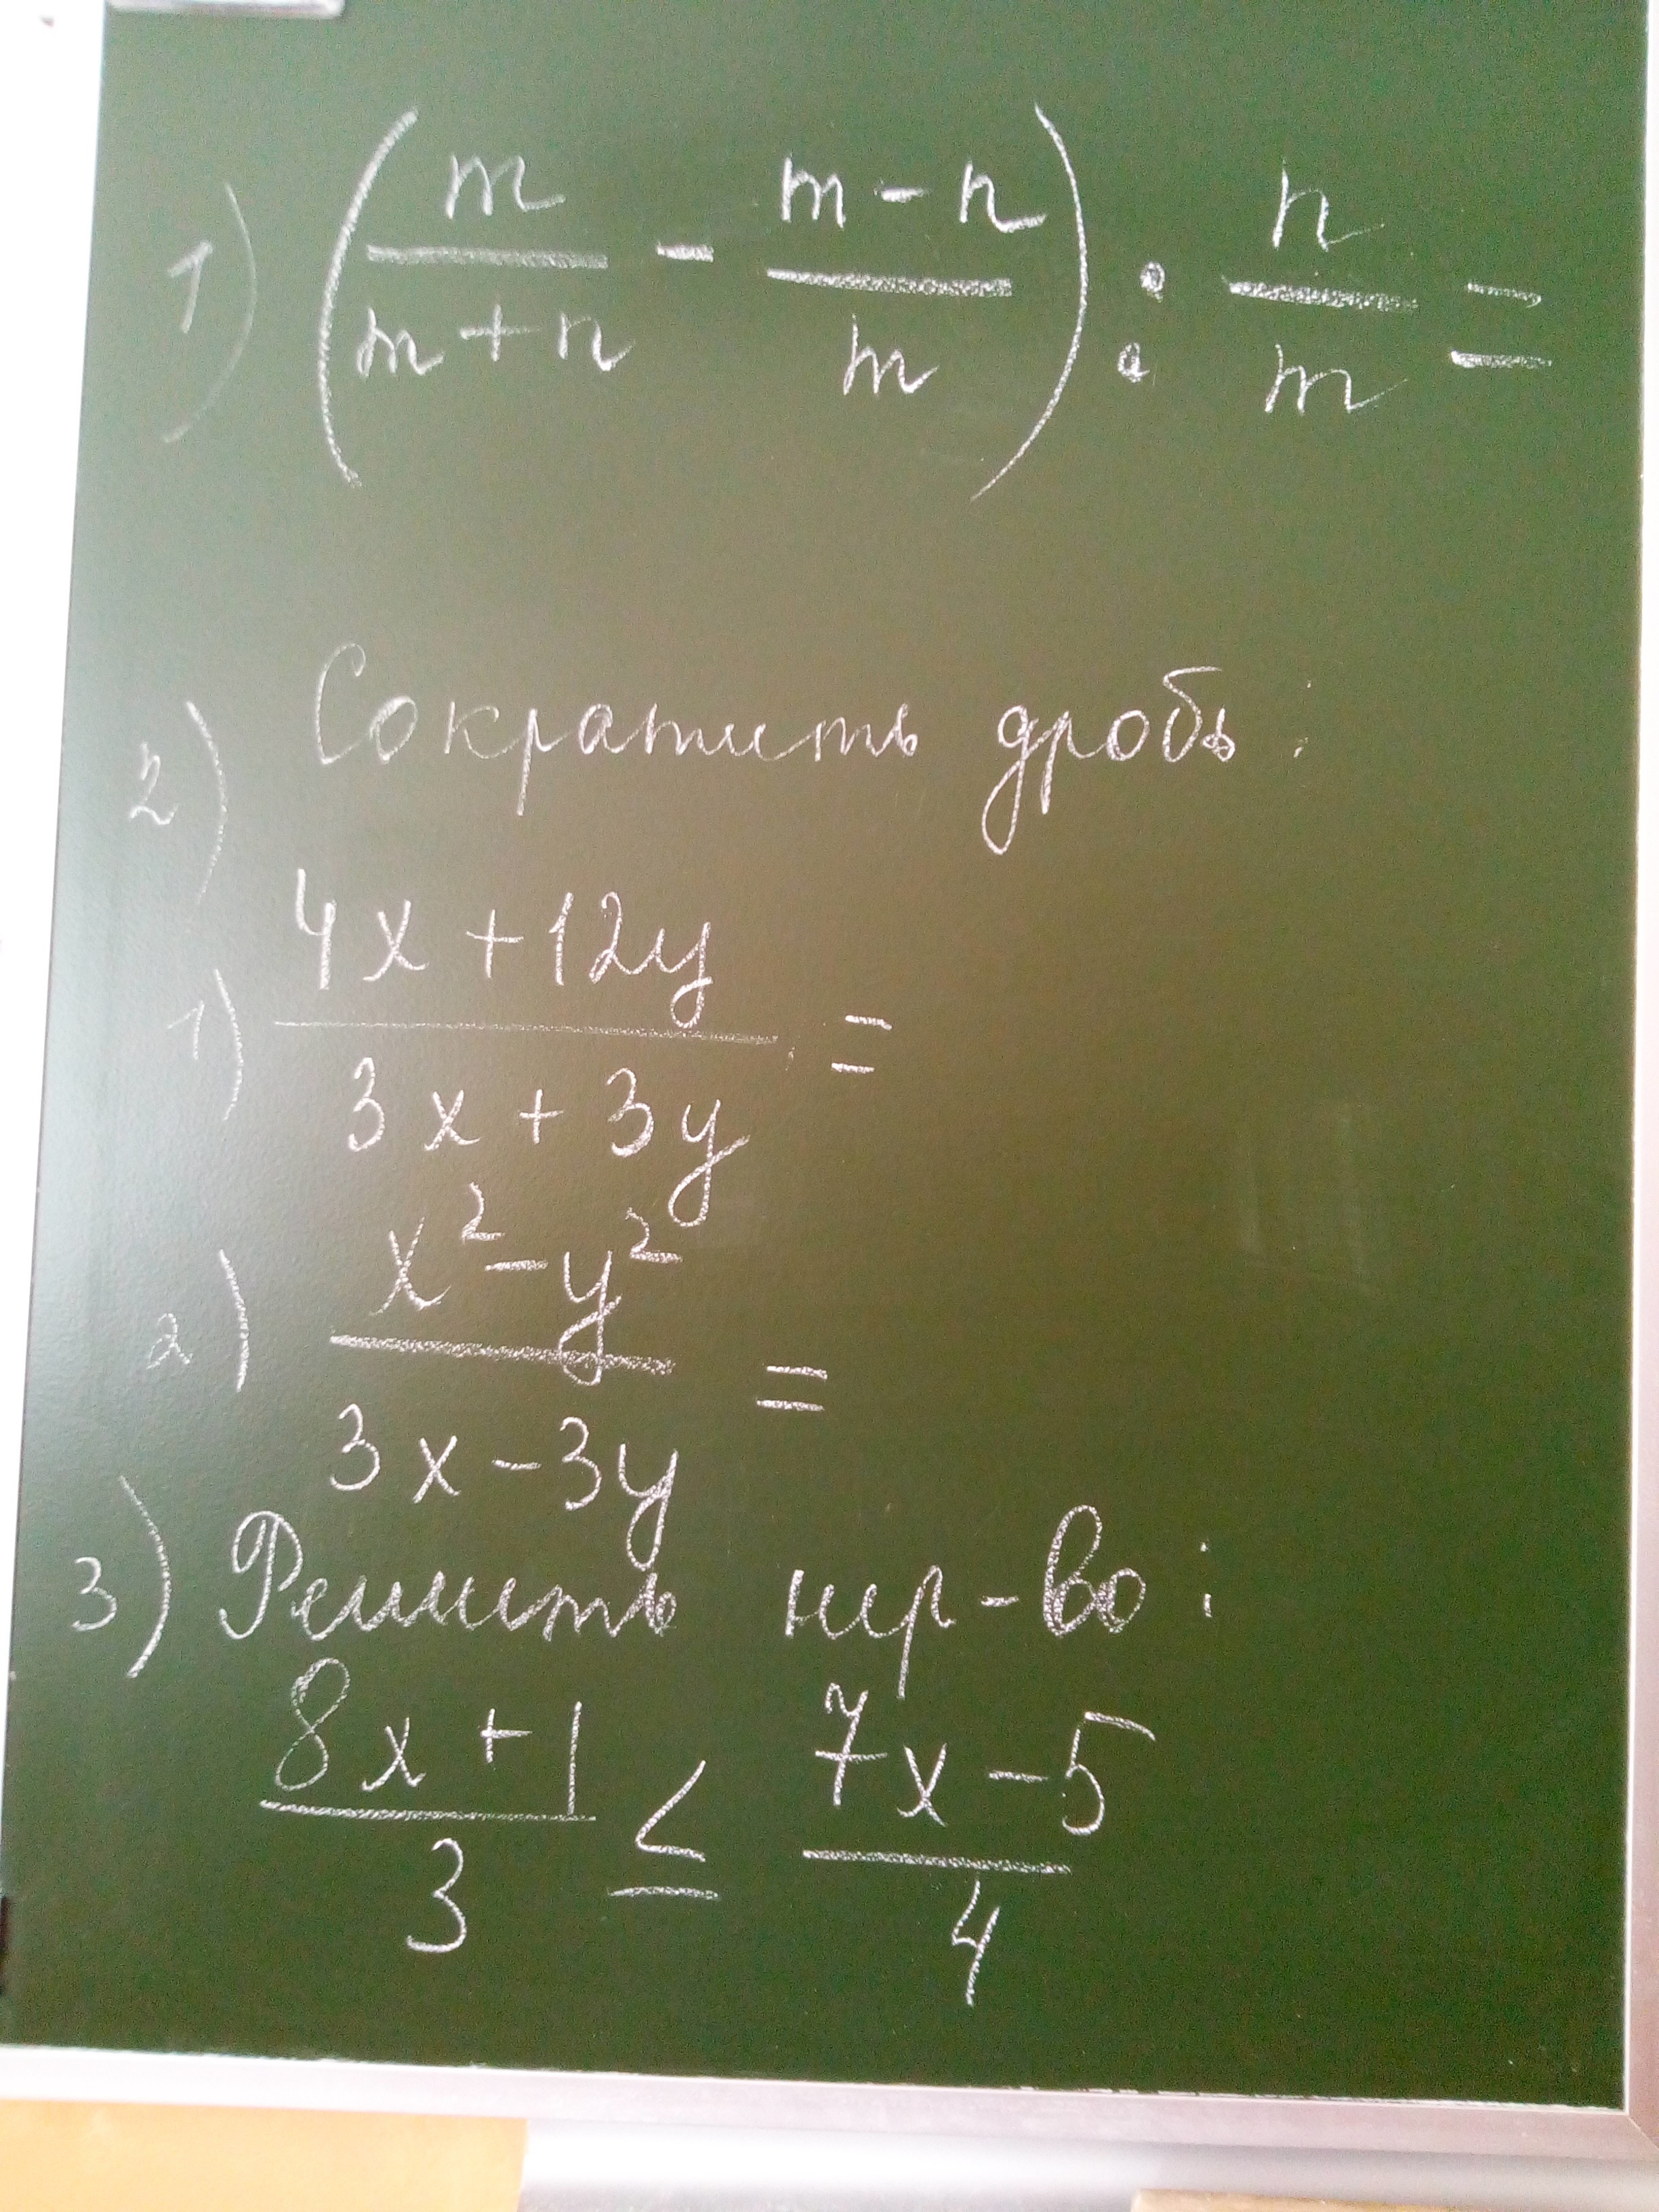 1) (m/(m+n) - (m-n)/m) : n/m =
2) Сократить дробь:
1) (4x+12y)/(3x+3y) =
2) (x²-y²)/(3x-3y) =
3) Решить нер-во:
(8x+1)/3 ≤ (7x-5)/4